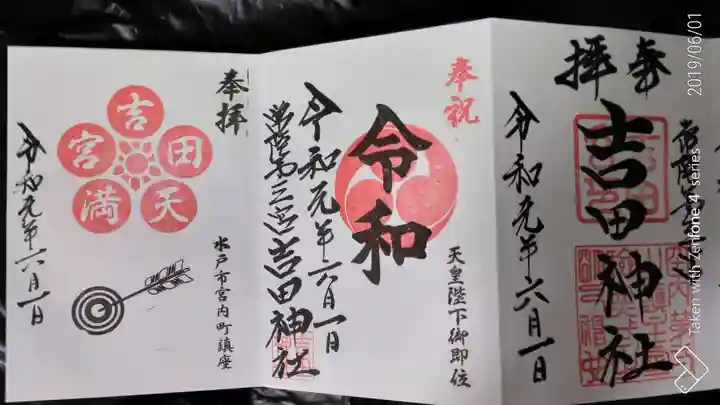 奉拝
吉田天満宮
水戸市宮内町鎮座
令和元年六月一日
奉祝
令和
天皇陛下御即位
令和元年六月一日
常陸第三宮吉田神社
奉拝
吉田神社
令和元年六月一日
2019/06/01
Taken with Zenfone 4 series